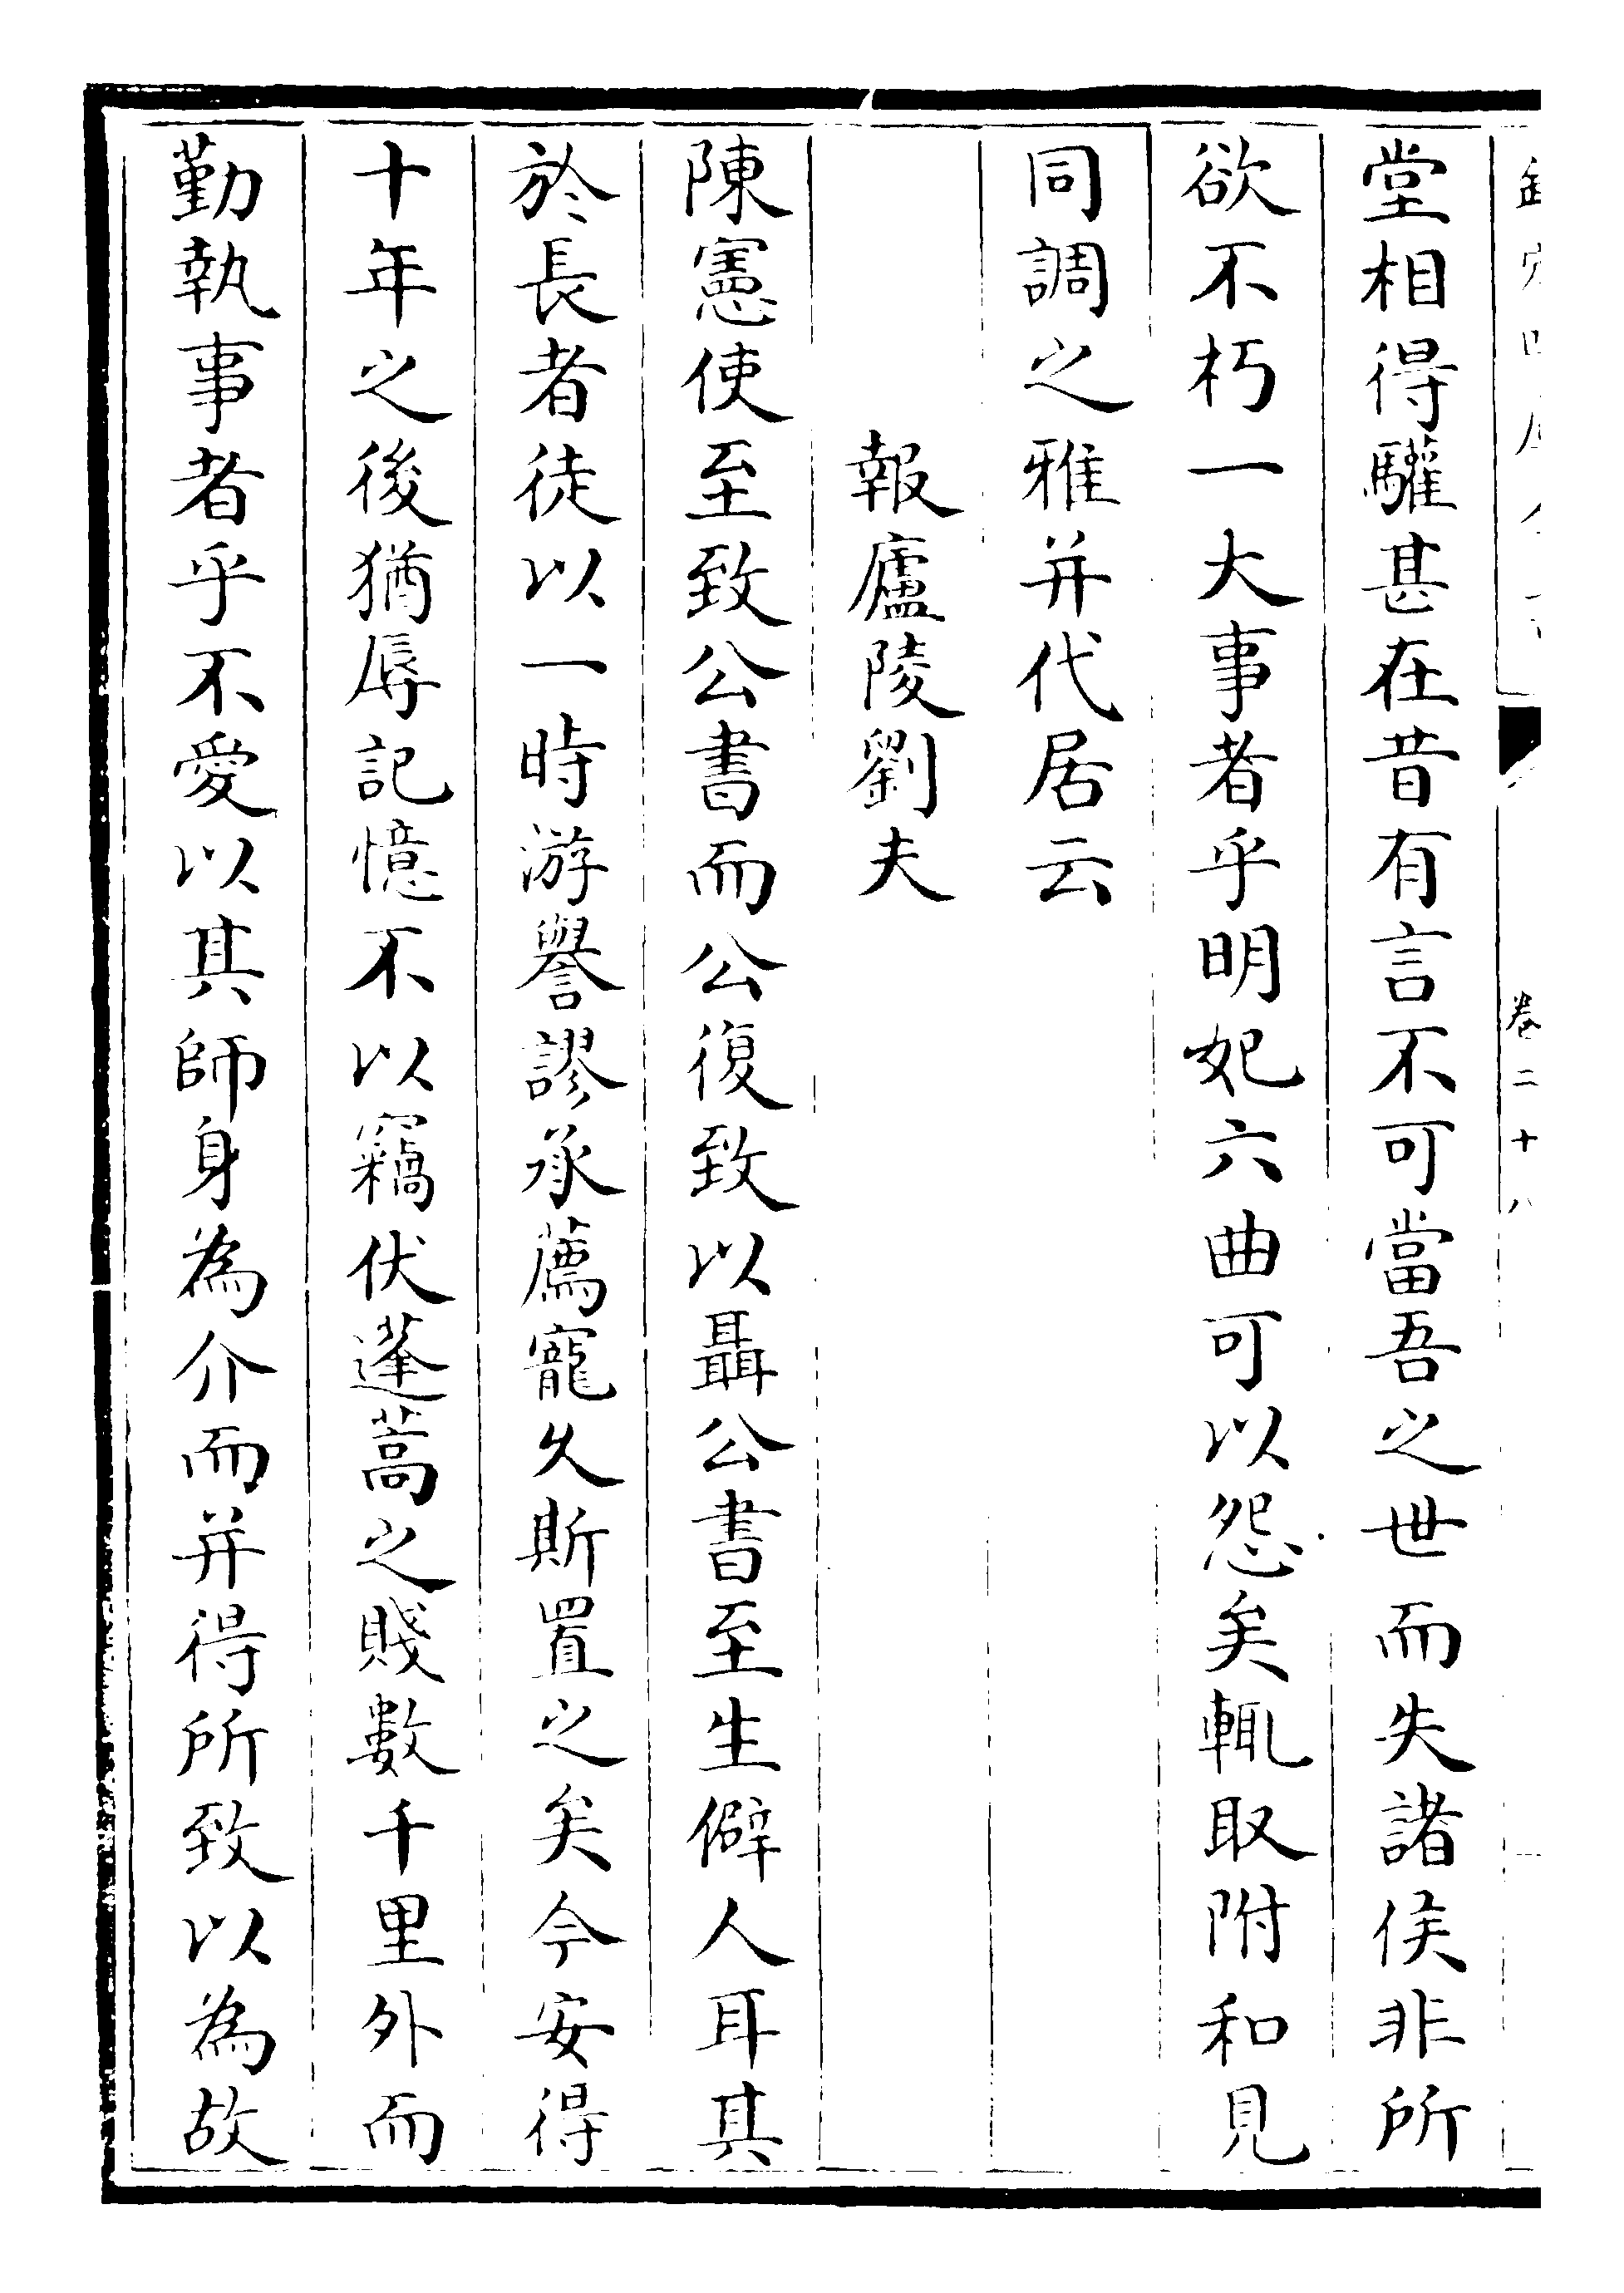 卷二十八
堂相得驩甚在昔有言不可當吾之世而失諸侯非所
欲不朽一大事者乎明妃六曲可以怨矣輒取附和見
同調之雅并代居云
報廬陵劉夫
陳憲使至致公書而公復致以聶公書至生僻人耳其
於長者徒以一時游譽謬承薦寵久斯置之矣今安得
十年之後猶辱記憶不以竊伏蓬蒿之賤數千里外而
勤執事者乎不愛以其師身為介而并得所致以為故